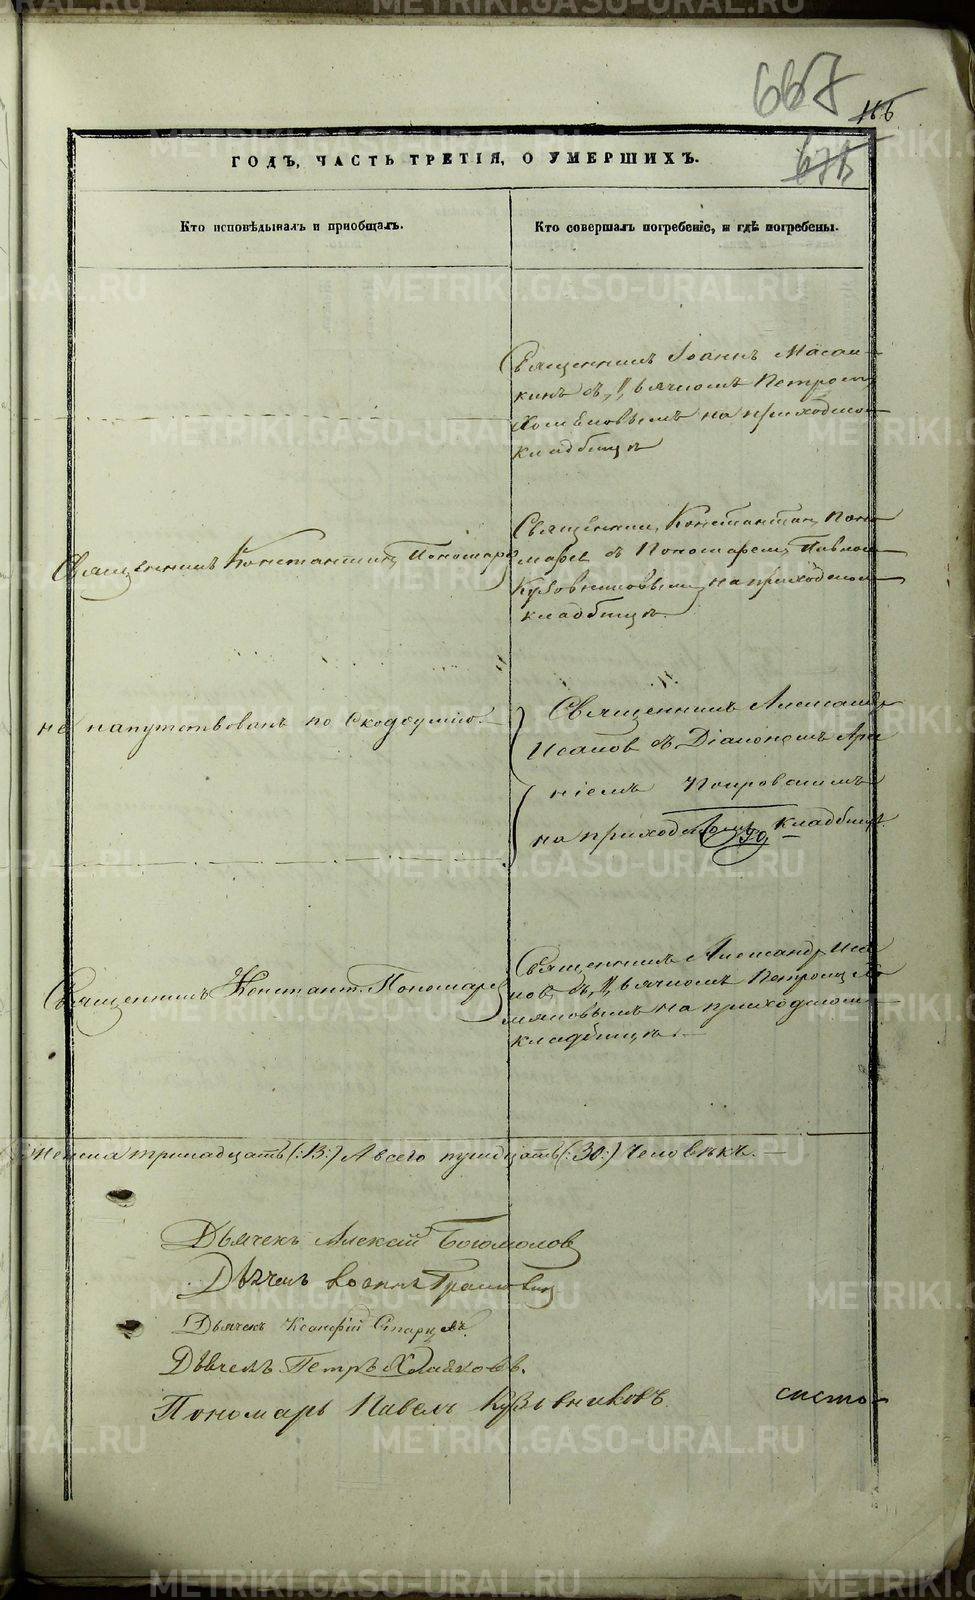 667
166
675
ГОДЪ, ЧАСТЬ ТРЕТІЯ, О УМЕРШИХЪ.
Кто исповѣдывалъ и приобщалъ.
Кто совершалъ погребеніе, и гдѣ погребены.
Священникъ Іоаннъ
съ Дьячкомъ Петромъ
на приходском
кладбищѣ
Священникъ Константинъ Пономарев
Священник Константин Поно
марев съ Пономарем Павлом
Кузовниковым на приходском
кладбищѣ.
не напутствованъ по скодоумію.
Священникъ Александр
Исаков съ Діакономъ Арсе
ніемъ Покровскимъ
на приходском кладбищѣ.
Священникъ Констант. Пономарев
Священникъ Александр Иса
ков, съ Дьячкомъ Петромъ
на приходском
кладбищѣ.
Женска тринадцать (:13:) А всего тридцать (:30:) Человѣкъ.
Дьячекъ Алексій Богомолов
Дьячекъ Іоаннъ
Дьячекъ Ксенофій Старцевъ.
Дьячекъ Петръ
Пономарь Павелъ Кузовниковъ.
METRIKI.GASO-URAL.RU